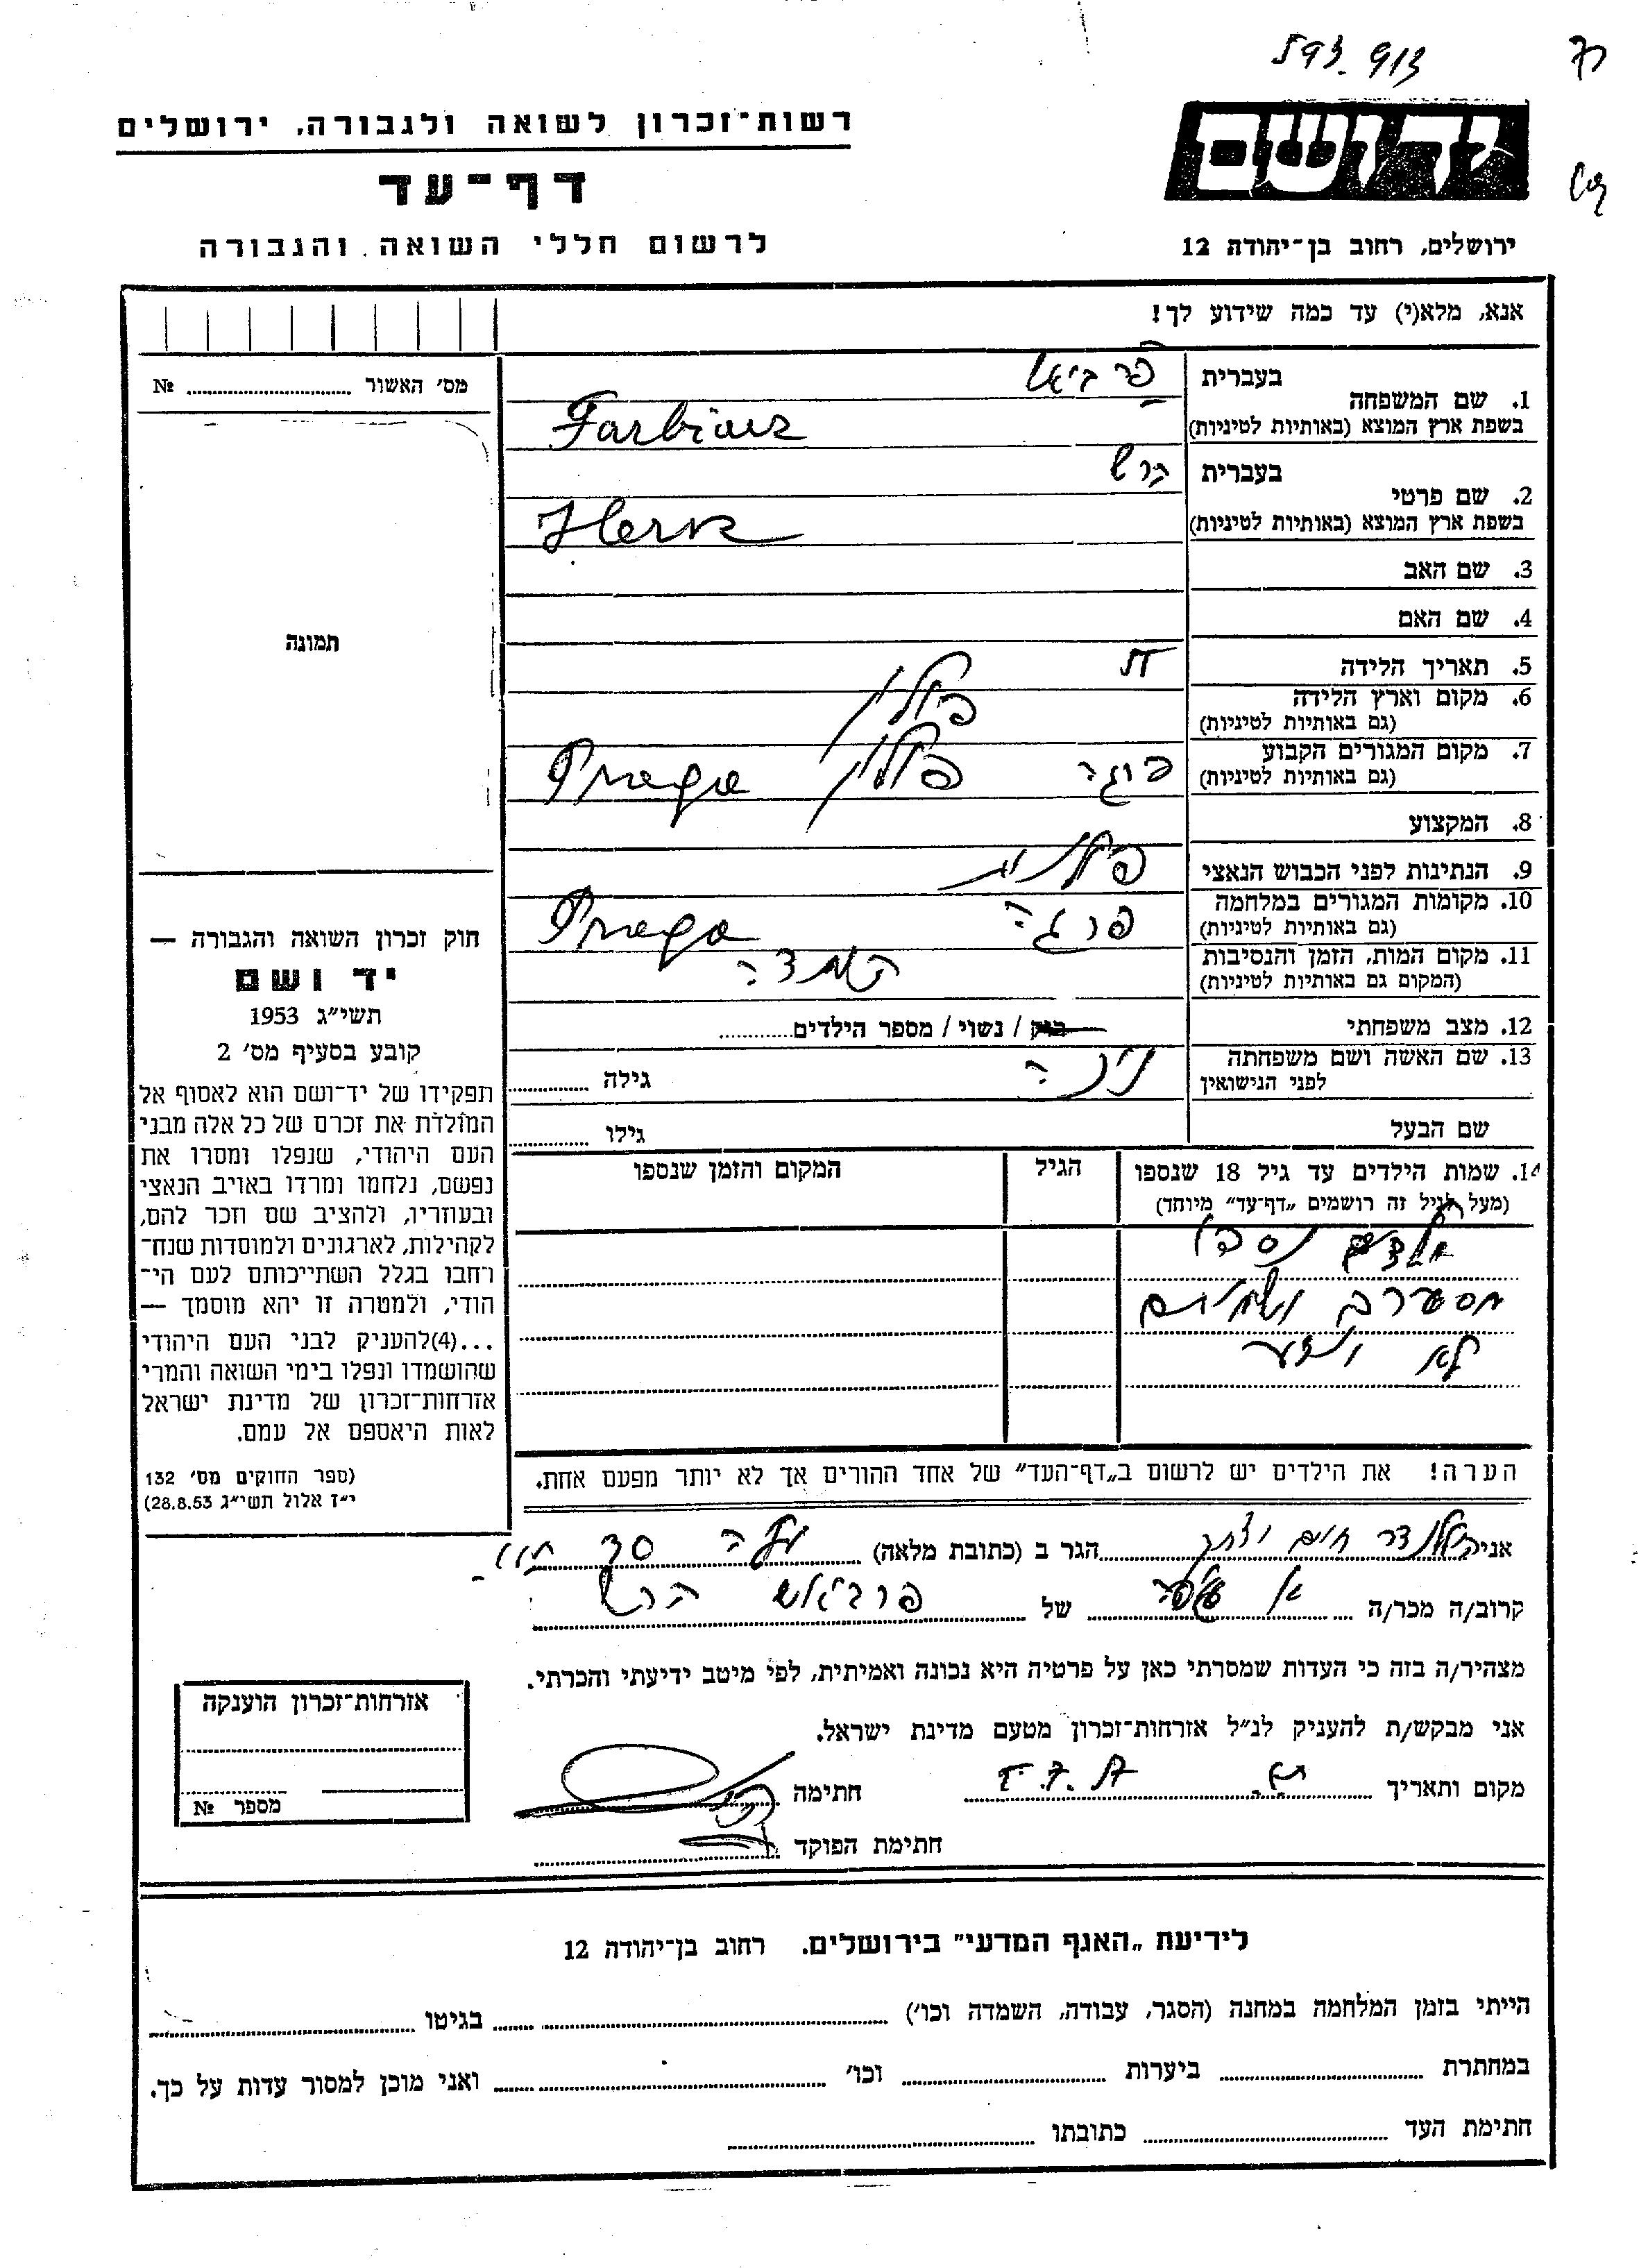 593. 913
יד ושם
ירושלים, רחוב בן־יהודה 12
רשות־זכרון לשואה ולגבורה, ירושלים
דף־עד
לרשום חללי השואה והגבורה
אנא, מלא(י) עד כמה שידוע לך!
מס׳ האשור № 
תמונה
בעברית
1. שם המשפחה
בשפת ארץ המוצא (באותיות לטיניות) Farbiarz
בעברית הרש
2. שם פרטי
בשפת ארץ המוצא (באותיות לטיניות) Hersz
3. שם האב
4. שם האם
5. תאריך הלידה
6. מקום וארץ הלידה פולין
(גם באותיות לטיניות)
7. מקום המגורים הקבוע פרגה פולין Praga
(גם באותיות לטיניות)
8. המקצוע
9. הנתינות לפני הכבוש הנאצי פולנית
10. מקומות המגורים במלחמה פרגה Praga
(גם באותיות לטיניות)
11. מקום המות, הזמן והנסיבות השמדה
(המקום גם באותיות לטיניות)
12. מצב משפחתי רווק / נשוי / מספר הילדים
13. שם האשה ושם משפחתה
לפני הנישואין גילה
שם הבעל גילו
14. שמות הילדים עד גיל 18 שנספו הגיל המקום והזמן שנספו
(מעל לגיל זה רושמים „דף־עד״ מיוחד)
ילדים נספו
מספרם ושמותם
לא ידוע
הערה! את הילדים יש לרשום ב„דף־העד״ של אחד ההורים אך לא יותר מפעם אחת.
חוק זכרון השואה והגבורה —
יד ושם
תשי״ג 1953
קובע בסעיף מס׳ 2
תפקידו של יד־ושם הוא לאסוף אל
המולדת את זכרם של כל אלה מבני
העם היהודי, שנפלו ומסרו את
נפשם, נלחמו ומרדו באויב הנאצי
ובעוזריו, ולהציב שם וזכר להם,
לקהילות, לארגונים ולמוסדות שנח־
רחבו בגלל השתייכותם לעם הי־
הודי, ולמטרה זו יהא מוסמך —
...(4)להעניק לבני העם היהודי
שהושמדו ונפלו בימי השואה והמרי
אזרחות־זכרון של מדינת ישראל
לאות היאספם אל עמם.
(ספר החוקים מס׳ 132
י״ז אלול תשי״ג 28.8.53)
אני חיים הגר ב (כתובת מלאה)
קרוב/ה מכר/ה של הרש
מצהיר/ה בזה כי העדות שמסרתי כאן על פרטיה היא נכונה ואמיתית, לפי מיטב ידיעתי והכרתי.
אני מבקש/ת להעניק לנ״ל אזרחות־זכרון מטעם מדינת ישראל.
מקום ותאריך חתימה
חתימת הפוקד
אזרחות־זכרון הוענקה
מספר №
לידיעת „האגף המדעי״ בירושלים. רחוב בן־יהודה 12
הייתי בזמן המלחמה במחנה (הסגר, עבודה, השמדה וכו׳) בגיטו
במחתרת ביערות וכו׳ ואני מוכן למסור עדות על כך.
חתימת העד כתובתו